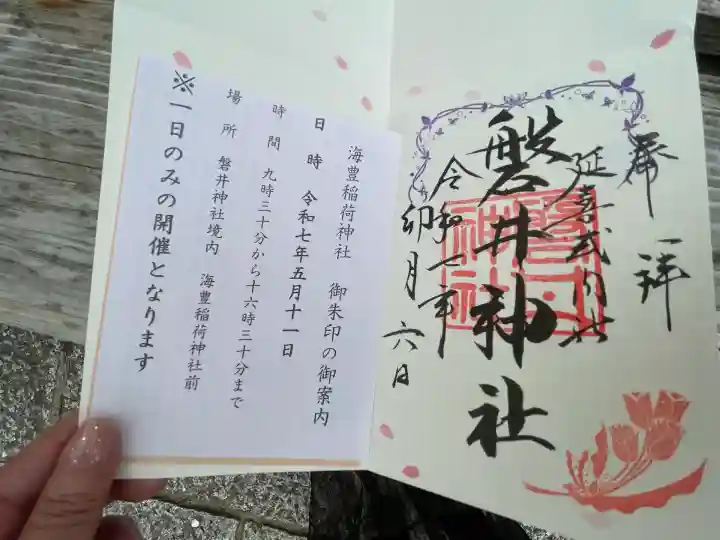 奉拝
延喜式内社
磐井神社
令和七年
卯月六日
海豊稲荷神社 御朱印の御案内
日時 令和七年五月十一日
時間 九時三十分から十六時三十分まで
場所 磐井神社境内 海豊稲荷神社前
※一日のみの開催となります